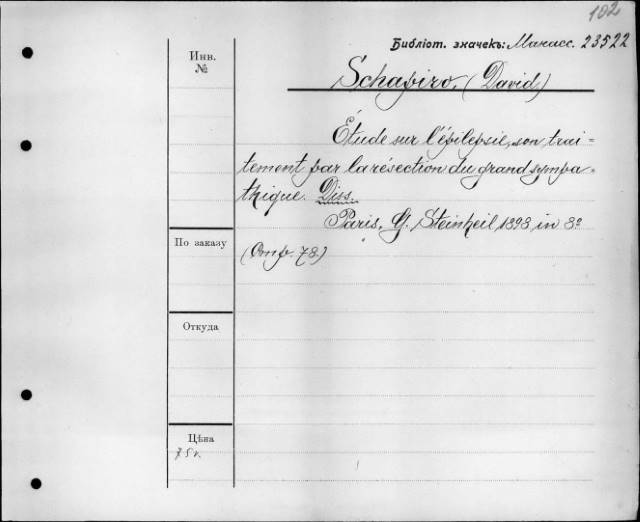 102
Библіот. значекъ: Манасс. 23522
Инв.
№
Schapiro, (David)
Étude sur l'épilepsie, son trai-
tement par la résection du grand sympa-
thique. Diss.
Paris, G. Steinheil 1898 in 8º
По заказу
(Стр. 78)
Откуда
Цѣна
75 к.